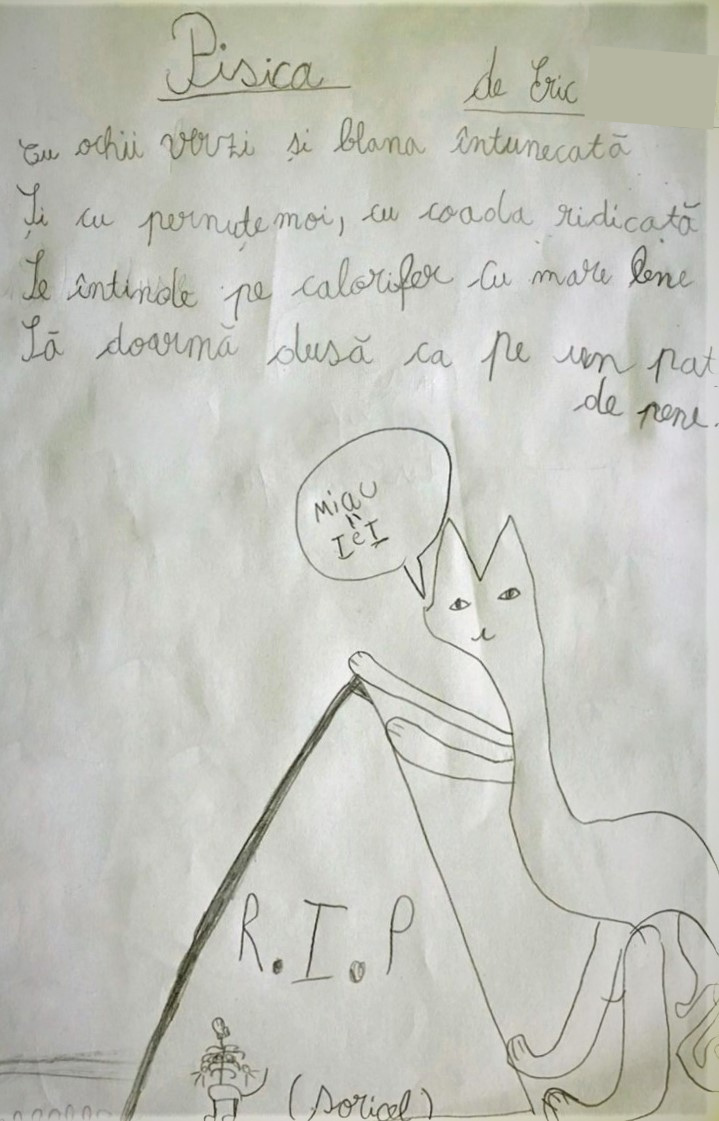 Pisica
de Eric
Cu ochii verzi și blana întunecată
Și cu pernuțe moi, cu coada ridicată
Se întinde pe calorifer cu mare lene
Să doarmă dusă ca pe un pat
de pene.
Miau
R.I.P
(șoricel)